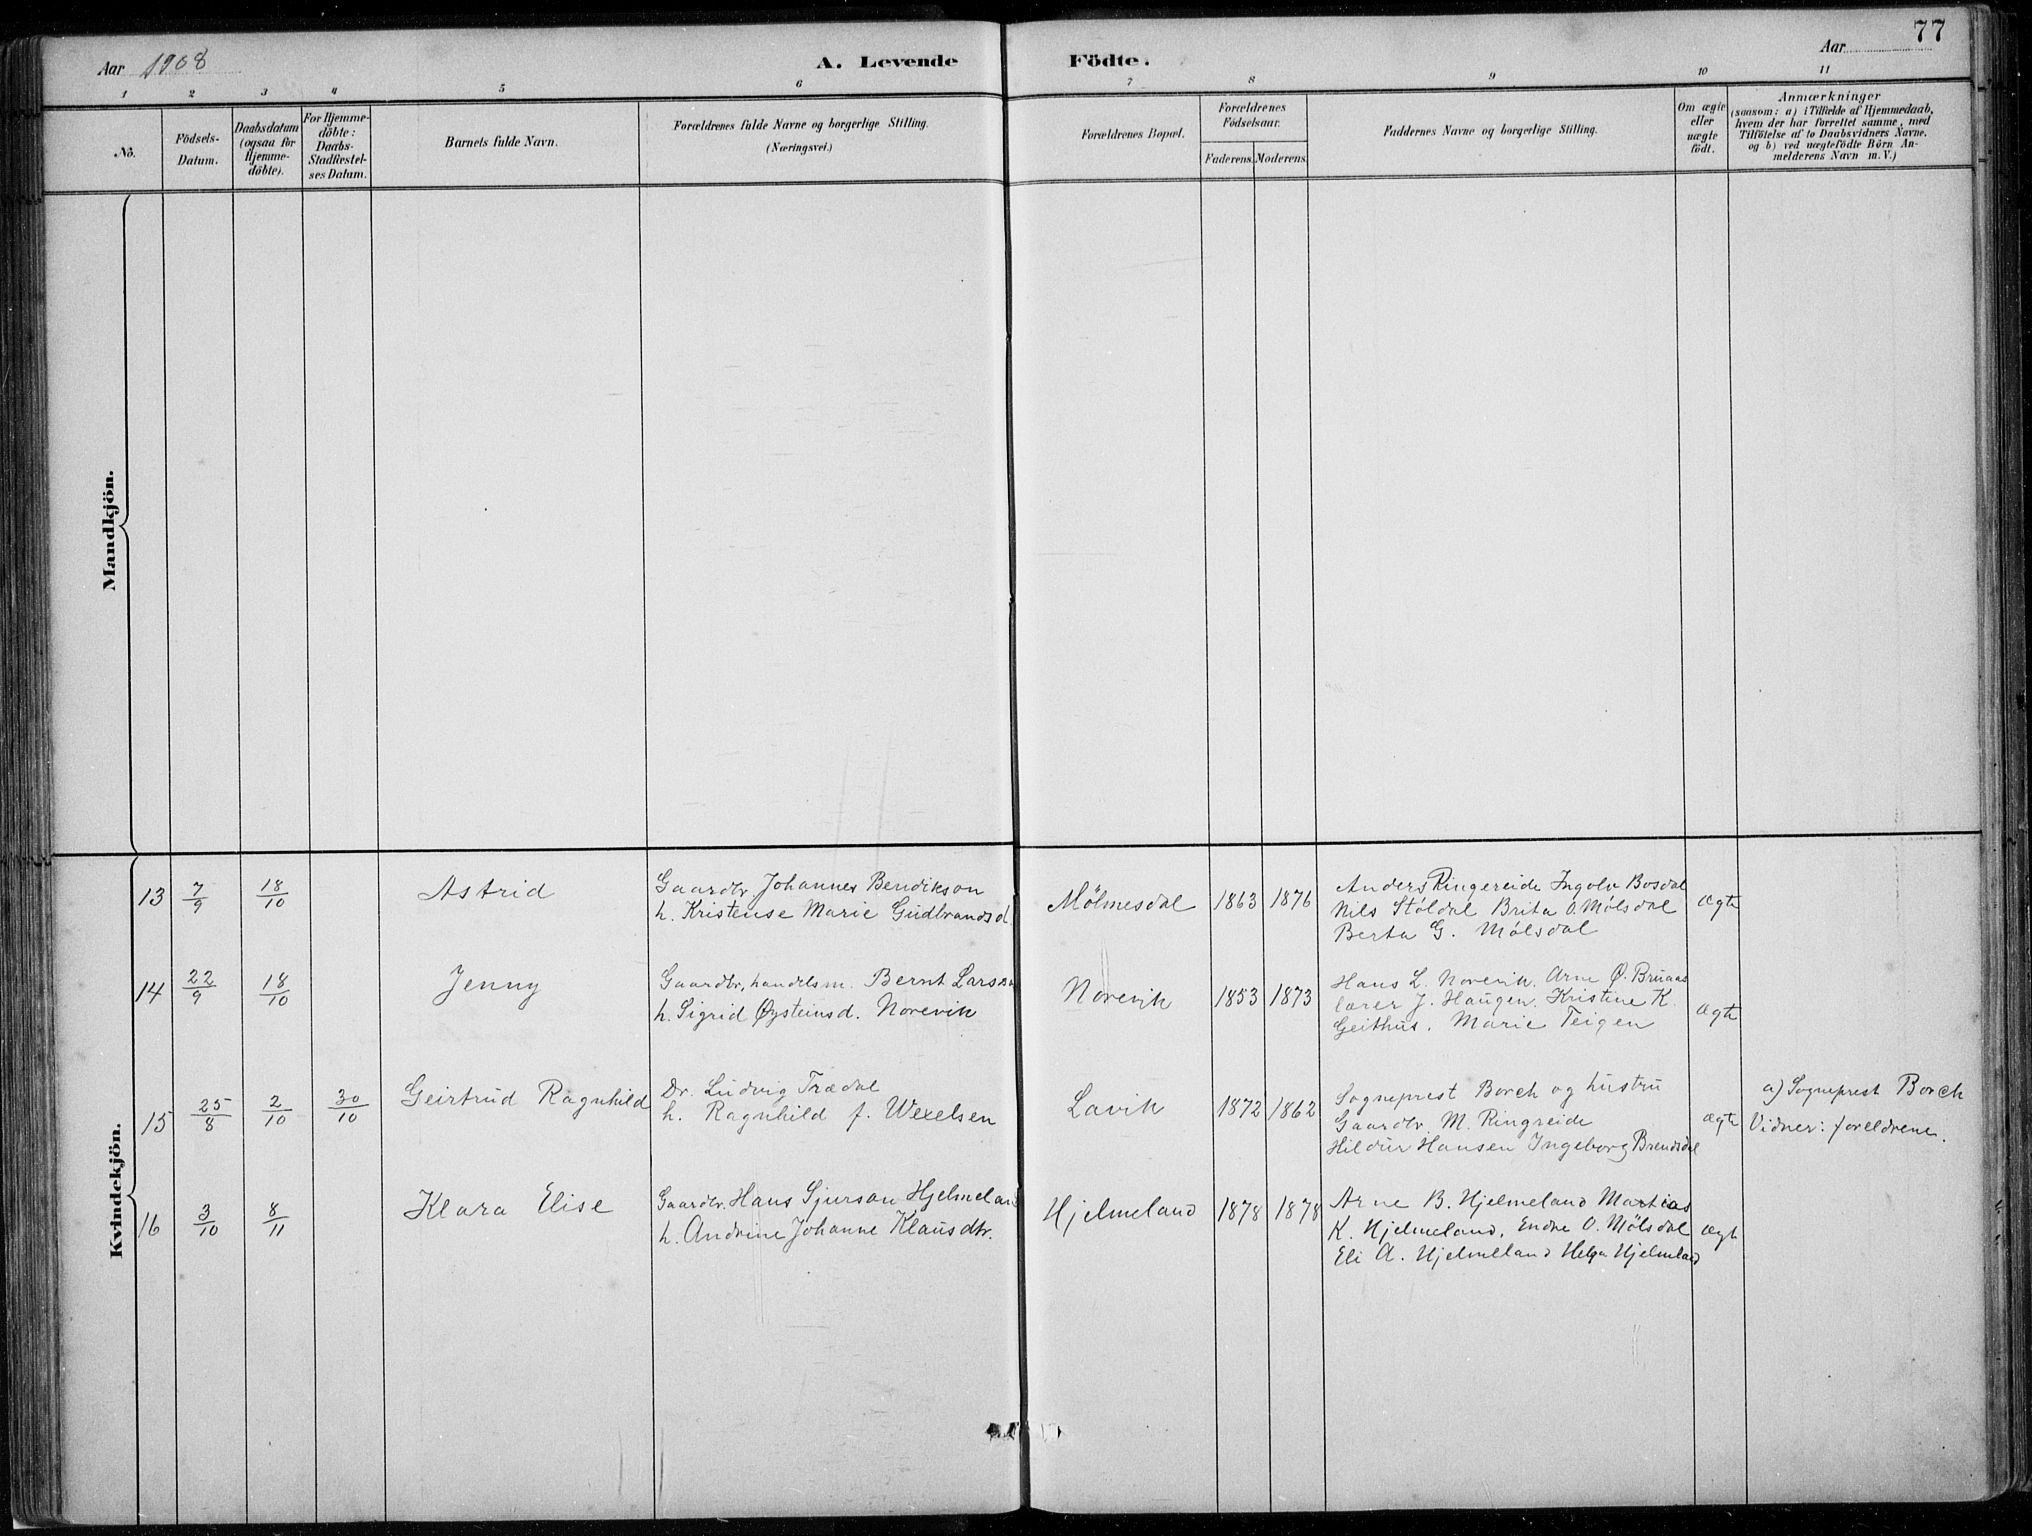 77
Aar 1908
A. Levende Födte.
Aar
1 2 3 4 5 6 7 8 9 10 11
Nò.
Födsels-
Datum.
Daabsdatum
(ogsaa for
Hjemme-
döbte).
For Hjemme-
döbte:
Daabs-
Stadfæstel-
ses Datum.
Barnets fulde Navn.
Forældrenes fulde Navne og borgerlige Stilling.
(Næringsvei.)
Forældrenes Bopæl.
Forældrenes
Födselsaar.
Faderens. Moderens.
Faddernes Navne og borgerlige Stilling.
Om ægte
eller
uægte
födt.
Anmærkninger
(saasom: a) i Tilfælde af Hjemmedaab,
hvem der har forrettet samme, med
Tilföielse af to Daabsvidners Navne.
og b) ved uægtefödte Börn An-
melderens Navn m. V.)
Mandkjön.
Kvindekjön.
13 7/9 18/10 Astrid
Gaardbr. Johannes Bendikson
h. Kristense Marie Gudbrandsd.
Mølmesdal 1863 1876
Anders Ringereide Ingolv Bosdal
Nils Støldal Brita O. Mølsdal
Berta G. Mølsdal
ægte
14 22/9 18/10 Jenny
Gaardbr, handelsm. Bernt Larsson
h. Sigrid Øysteinsd. Norevik
Norevik 1853 1873
Hans L. Norevik. Arne Ø. Bruaas
lærer J. Haugen. Kristine K.
Geithus. Marie Teigen
ægte
15 25/8 2/10 30/10 Geirtrud Ragnhild
Dr. Ludvig Trædal
h. Ragnhild f. Wexelsen
Lavik 1872 1862
Sogneprest Borch og hustru
Gaardbr. M. Ringreide
Hildur Hansen Ingeborg Brendsdal
ægte
a) Sogneprest Borch
Vidner: foreldrene.
16 3/10 8/11 Klara Elise
Gaardbr. Hans Sjurson Hjelmeland
h. Andrine Johanne Klausdtr.
Hjelmeland 1878 1878
Arne B. Hjelmeland Martias
K. Hjelmeland, Endre O. Mølsdal
Eli A. Hjelmeland Helga Hjelmeland
ægt